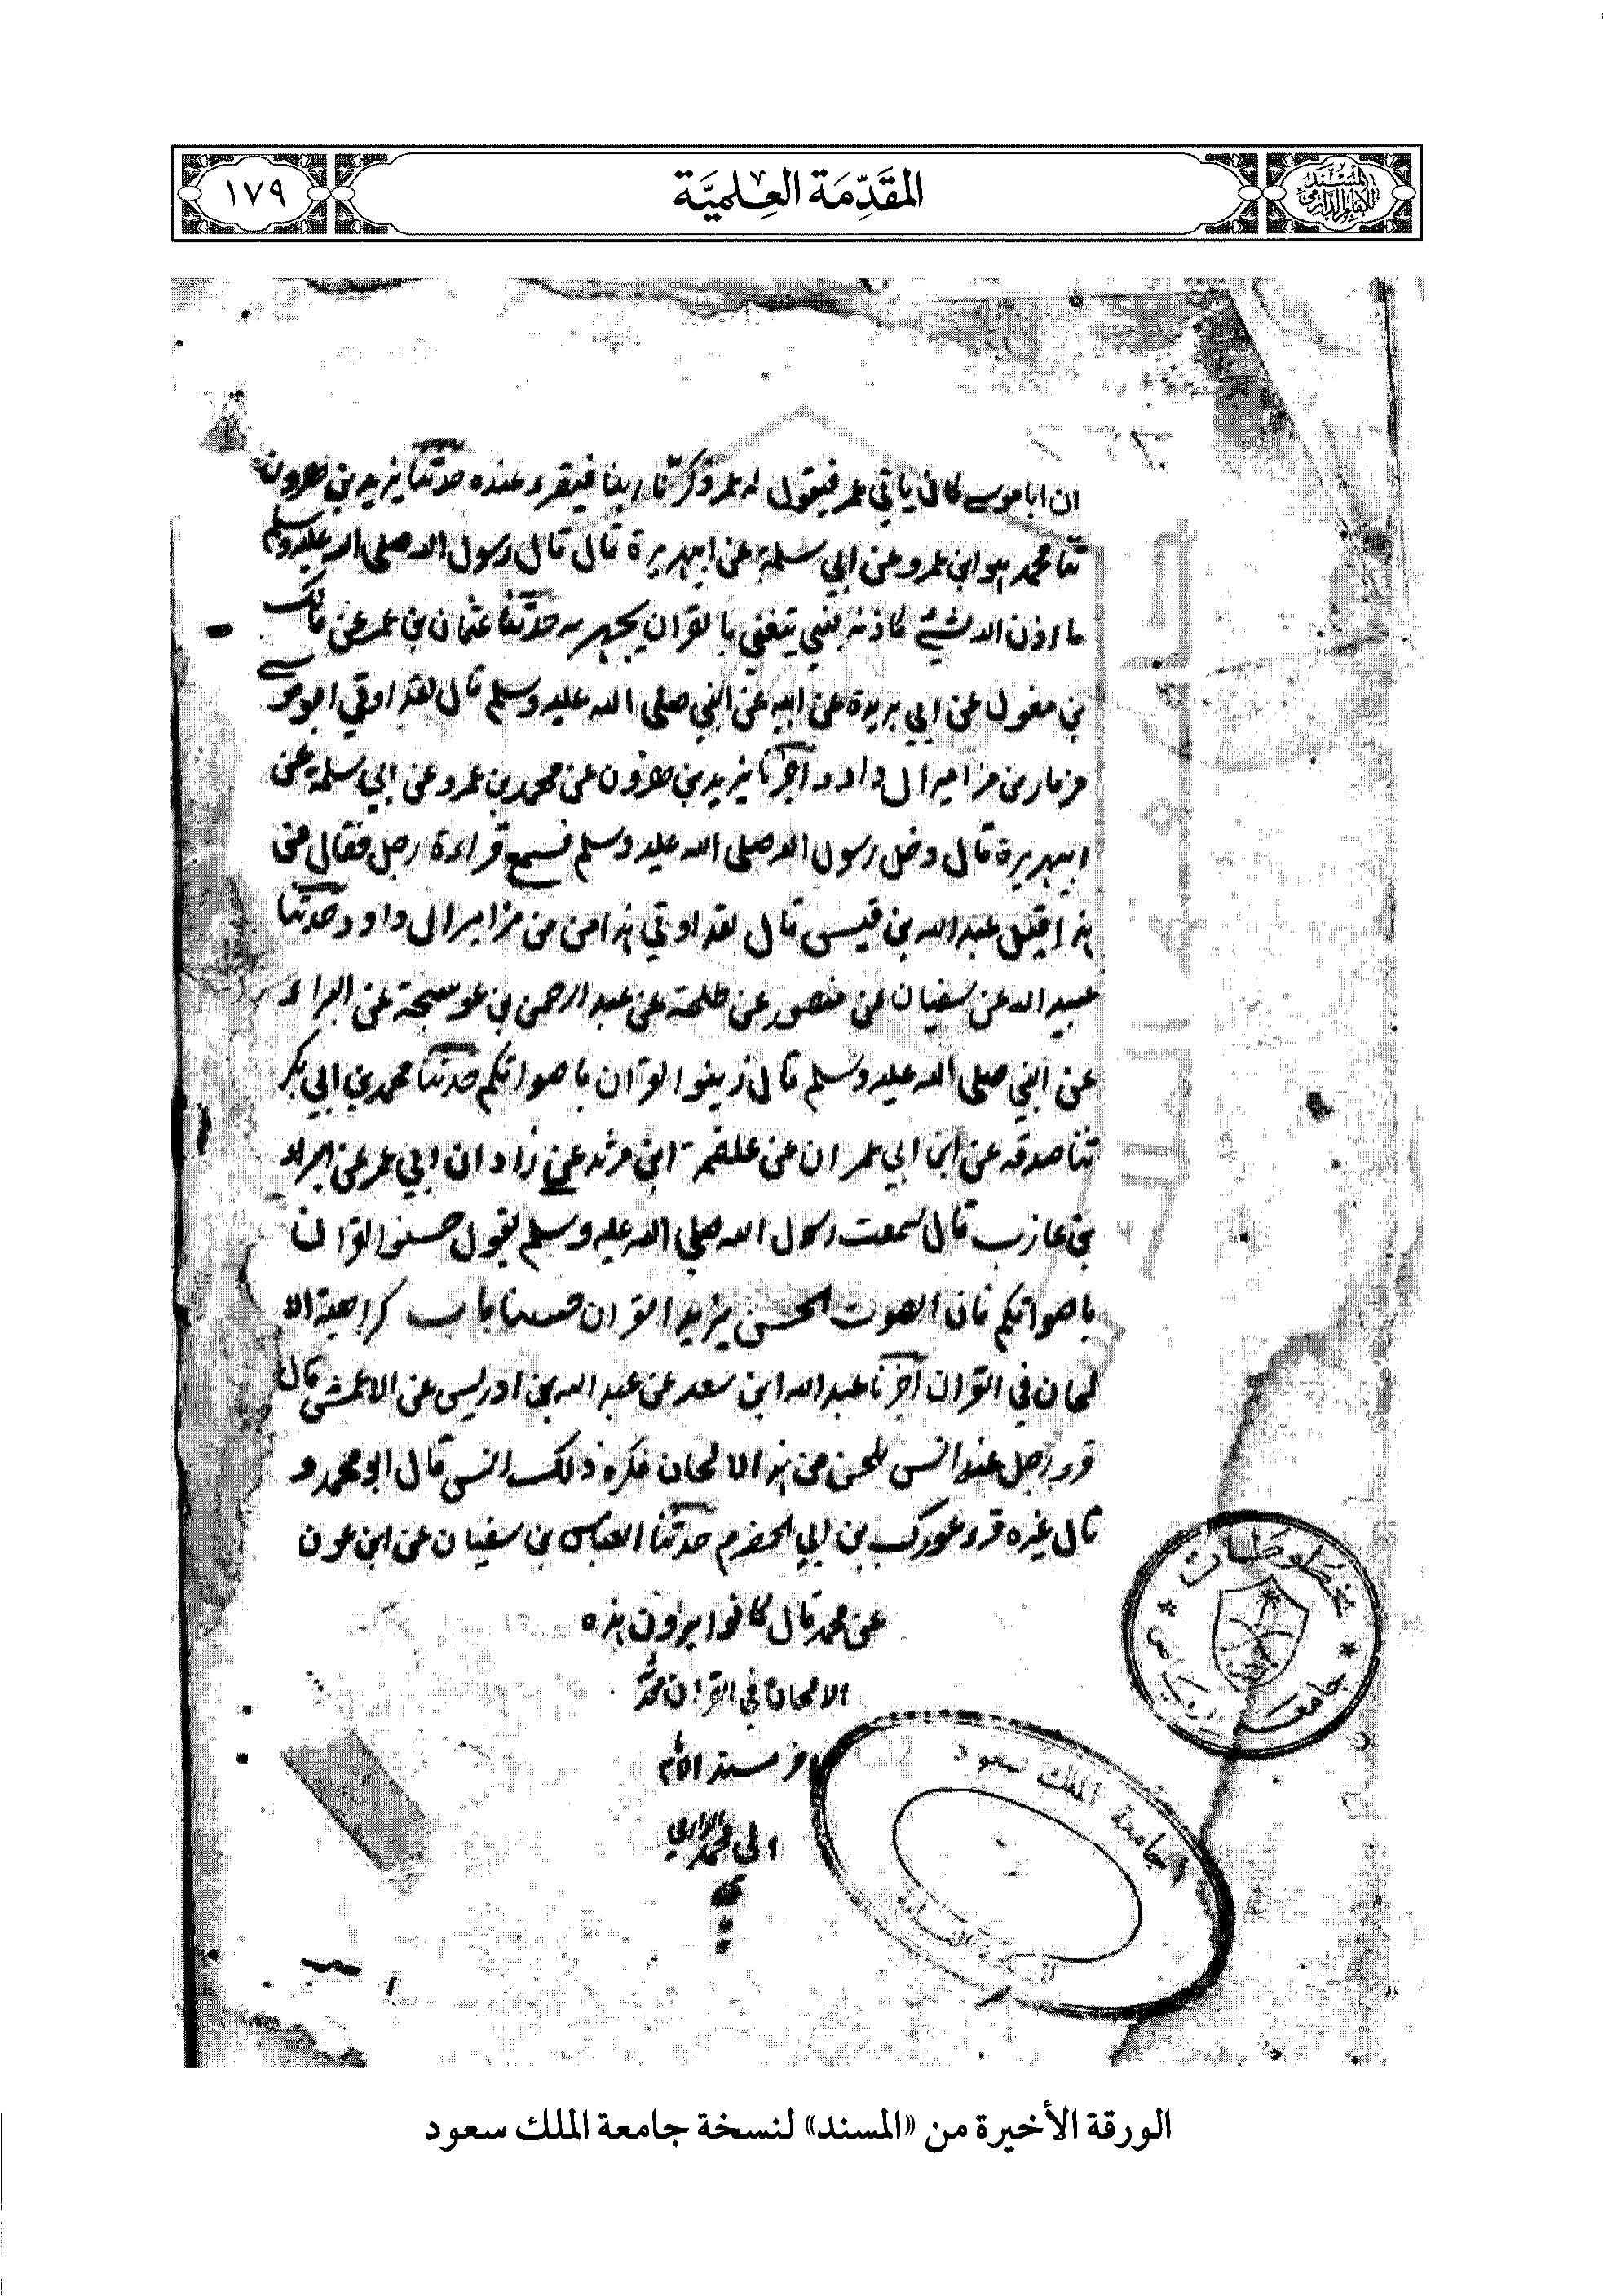 المسند للإمام الدارمي
المقدمة العلمية
١٧٩
ان ابا موسى كان ياتي عمر فيقول له عمر ذكرنا ربنا فيقرء عنده حدثنا يزيد بن هرون
ثنا محمد هو ابن عمرو عن ابي سلمة عن ابيهريرة قال قال رسول الله صلى الله عليه وسلم
ما اذن الله لشئ كاذنه لنبي يتغني بالقران يجهر به حدثنا عثمان بن عمر عن مالك
بن مغول عن ابي بريدة عن ابيه عن النبي صلى الله عليه وسلم قال لقد اوتي ابو موسى
مزمار من مزامير ال داود اخبرنا يزيد بن هرون عن محمد بن عمرو عن ابي سلمة عن
ابيهريرة قال دخل رسول الله صلى الله عليه وسلم فسمع قراءة رجل فقال من
هذا قيل عبد الله بن قيس قال لقد اوتي هذا من من مزامير ال داود حدثنا
عبيد الله عن سفيان عن منصور عن طلحة عن عبد الرحمن بن عوسجة عن البراء
عن النبي صلى الله عليه وسلم قال زينوا القران باصواتكم حدثنا محمد بن ابي بكر
ثنا صدقه عن ابن ابي عمران عن علقمة ابن مرثد عن زادان ابي عمر عن البراء
بن عازب قال سمعت رسول الله صلى الله عليه وسلم يقول حسنوا القران
باصواتكم فان الصوت الحسن يزيد القران حسنا باب كراهية الا
لحان في القران اخبرنا عبد الله ابن سعد عن عبد الله بن ادريس عن الاعمش قال
قرء رجل عند انس بلحن من هذه الالحان فكره ذلك انس قال ابو محمد و
قال غيره قرء غورك بن ابي الخضرم حدثنا العباس بن سفيان عن ابن عون
عن محمد قال كانوا يرون هذه
الالحان في القران محدثة
اخر مسند الامام
ابي محمد الدارمي
مخطوطات
جامعة الرياض
جامعة الملك سعود
الورقة الأخيرة من «المسند» لنسخة جامعة الملك سعود